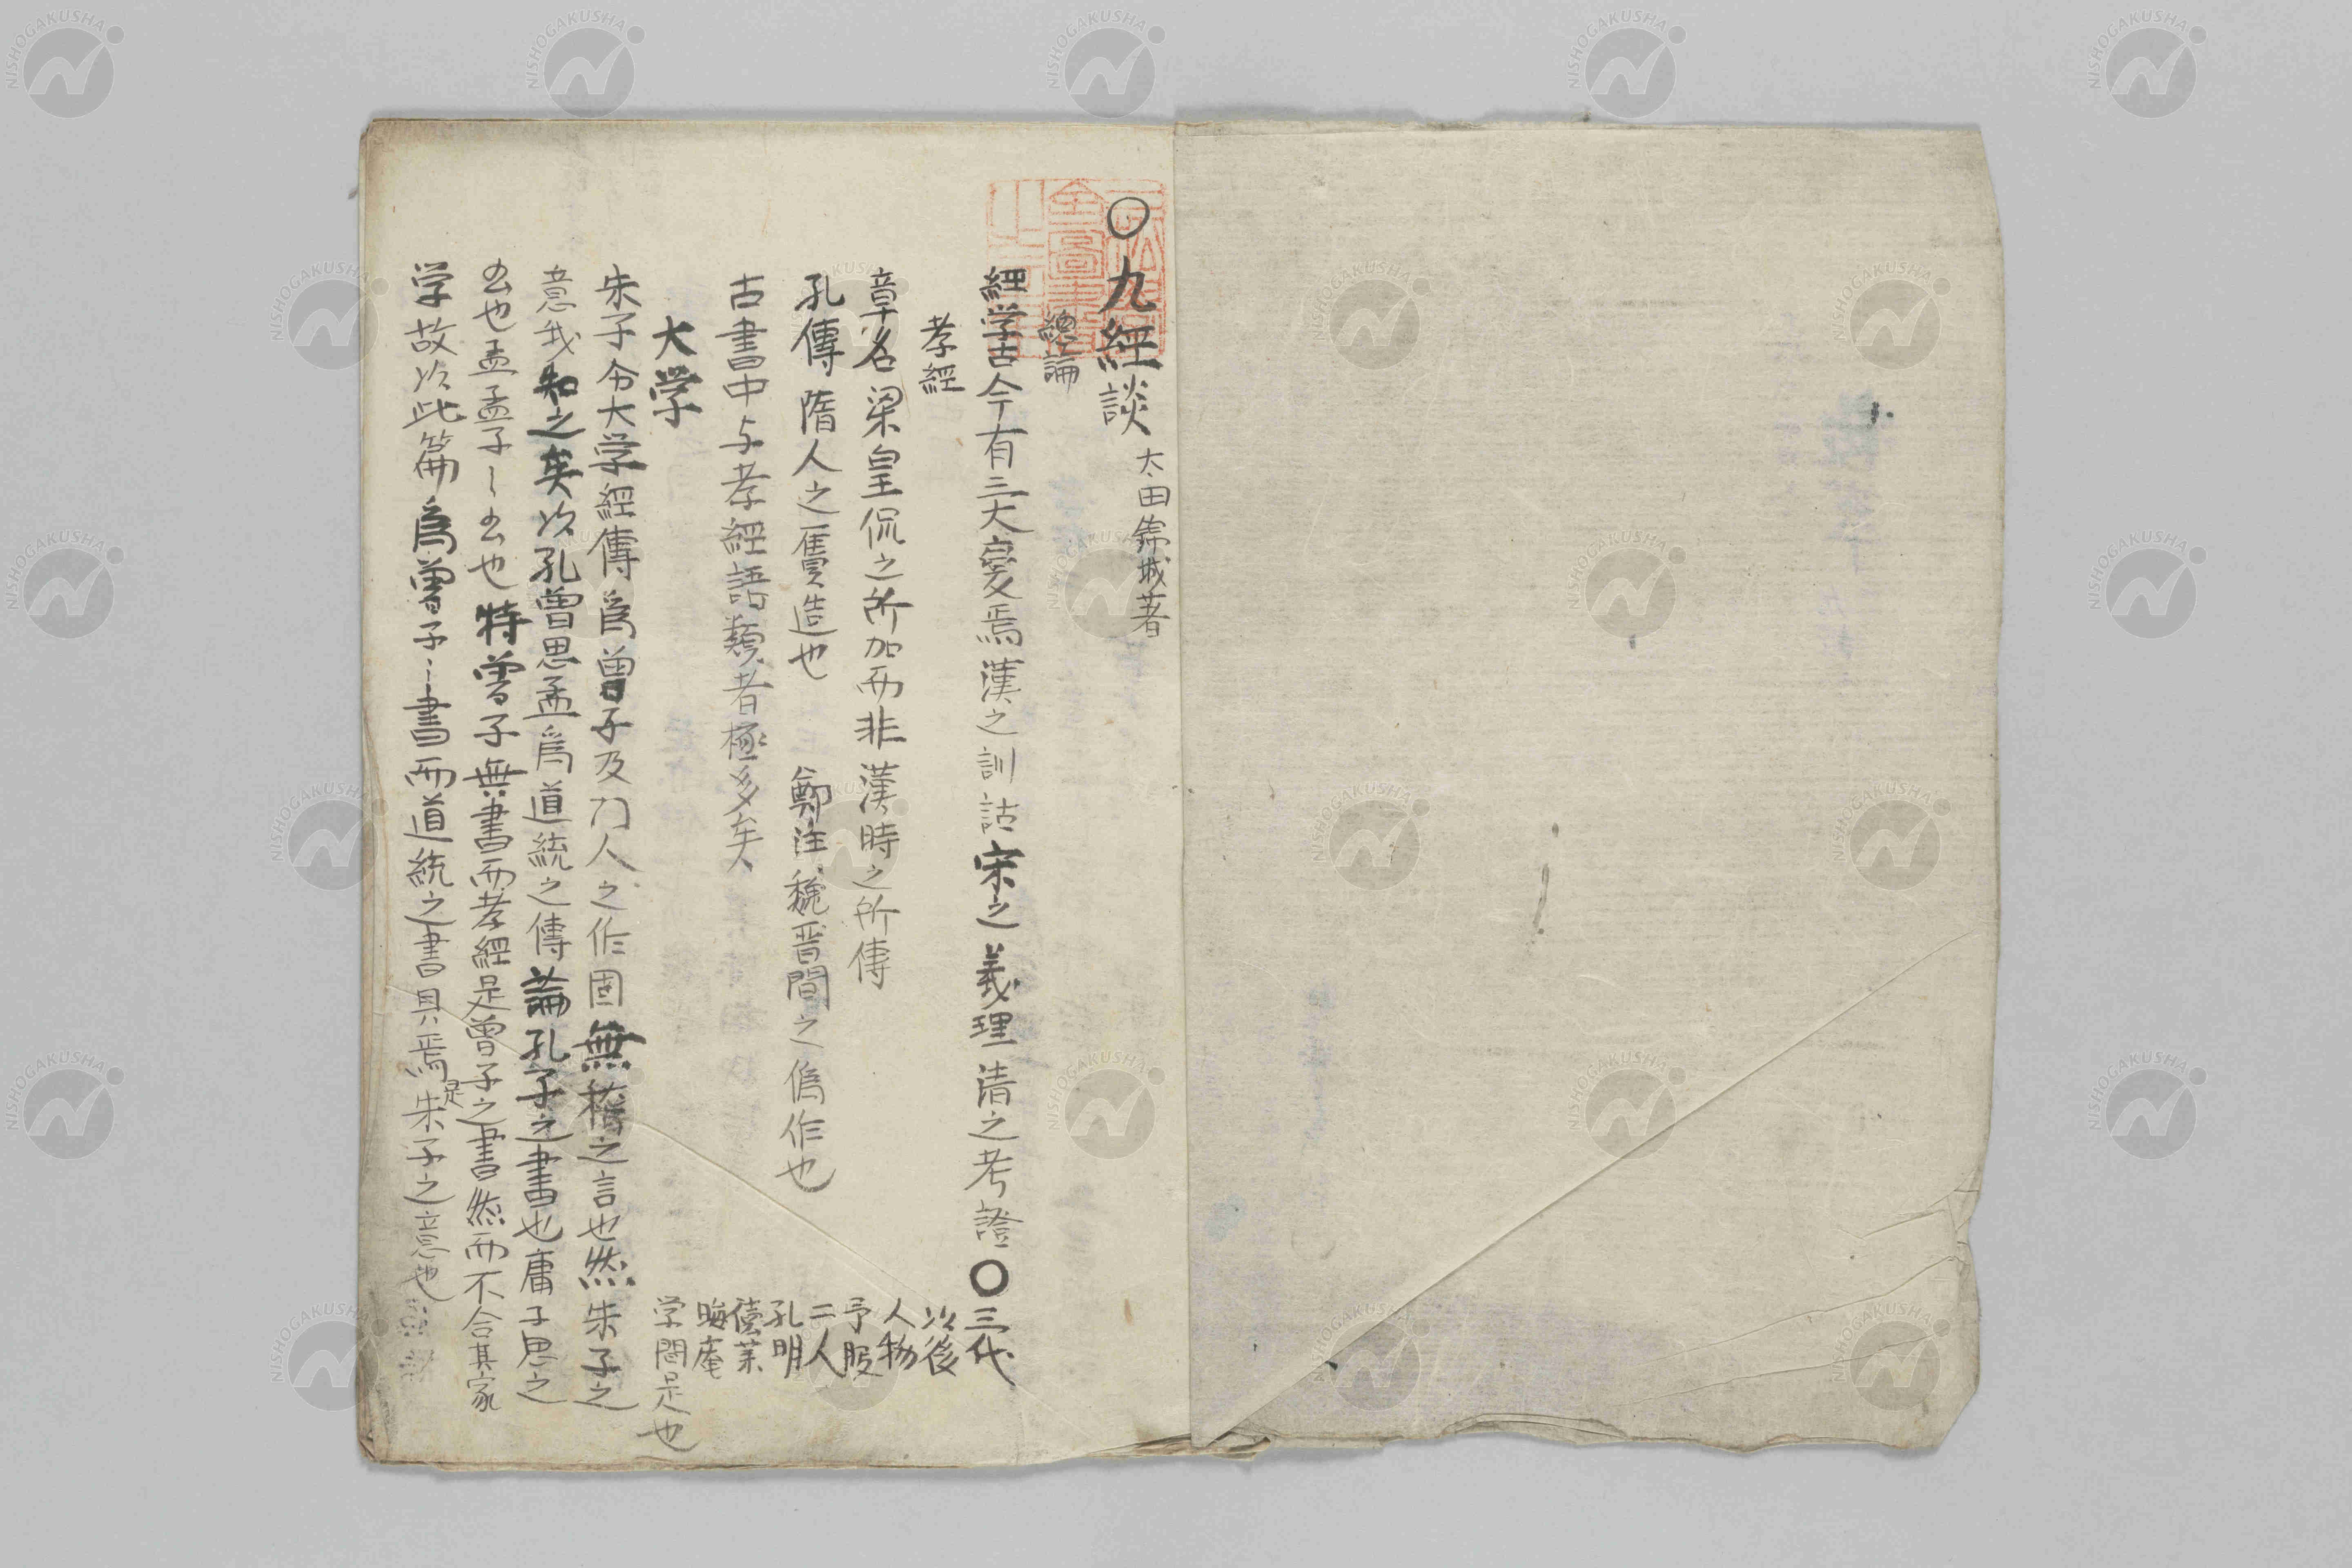 〇九經談 太田錦城著
總論
經学古今有三大變焉漢之訓詁宋之義理清之考證〇三代
以後
人物
予服
二人
孔明
德業
晦庵
学問是也
孝經
章名梁皇侃之所加而非漢時之所傳
孔傳隋人之贋造也 鄭注魏晋間之偽作也
古書中与孝經語類者極多矣
大学
朱子分大学經傳為曽子及門人之作固無稽之言也然朱子之
意我知之矣次孔曽思孟為道統之傳論孔子之書也庸子思之
書也孟孟子〻書也特曽子無書而孝經是曽子之書然而不合其家
学故次此篇為曽子〻書而道統之書具焉是朱子之意也
NISHOGAKUSHA